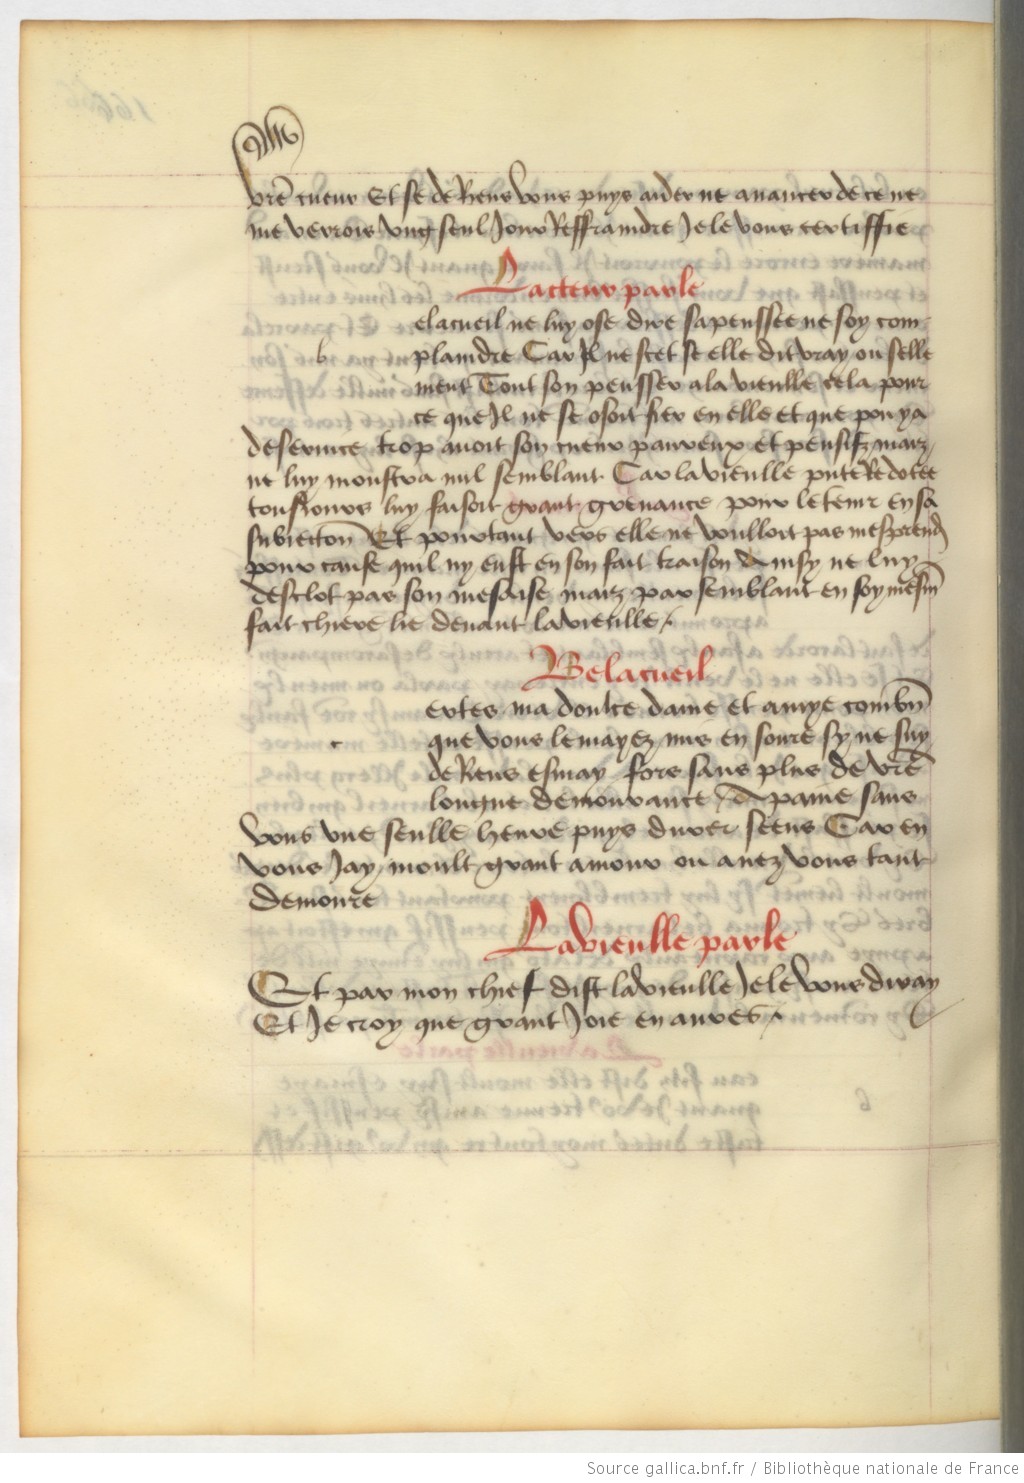 vr̄e cueur Et se de Riens vous puys aider ne auancer de ce ne
me verrois vng seul Jour Reffraindre Je le vous certiffie
Lacteur parle
elacueil ne luy ose dire sa penssee ne soy com
b plaindre Car Il ne scet se elle dit vray ou selle
ment Tout son pensser a la vieulle cela pour
ce que Il ne se osoit fier en elle et que pou y a
deseruice trop auoit son cueur paureux et pensif maiz
ne luy monstra nul semblant Car la vieulle pute Redotee
tousiours luy faisoit grant greuance pour le tenir en sa
subiection Et pourtant vers elle ne voulloit pas mesprend
pour cause quil ny eust en son fait traison Ainsy ne luy
desclot pas son mesaise maiz par semblant en soy mesm̄
fait chiere lie deuant la vieulle
Belacueil
ertes ma doulce dame et amye combn̄
c que vous lemayez mis en soure sy ne suy
de Riens esmay fors sans plus de vr̄e
longue demourance A paine sans
vous vne seulle heure puys durer seens Car en
vous Jay moult grant amour ou auez vous tant
demoure
La vieulle parle
Et par mon chief dist la vieulle Je le vous diray
Et Je croy que grant Joie en aures
Source gallica.bnf.fr / Bibliothèque nationale de France